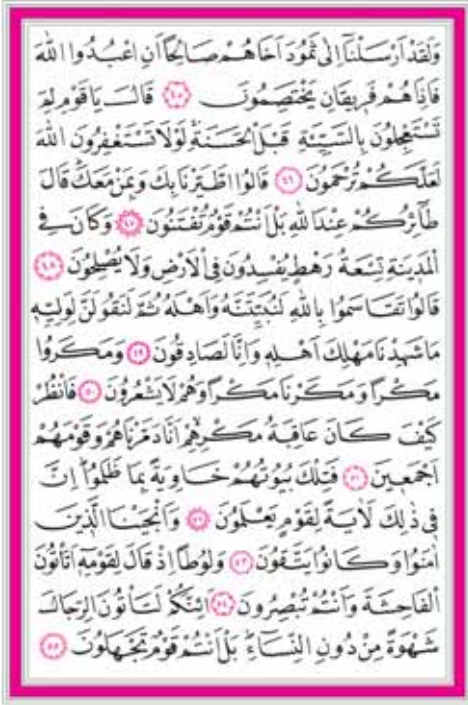 وَلَقَدْ اَرْسَلْنَٓا اِلٰى ثَمُودَ اَخَاهُمْ صَالِحًا اَنِ اعْبُدُوا اللّٰهَ
فَاِذَا هُمْ فَرٖيقَانِ يَخْتَصِمُونَ ﴿٤٥﴾ قَالَ يَا قَوْمِ لِمَ
تَسْتَعْجِلُونَ بِالسَّيِّئَةِ قَبْلَ الْحَسَنَةِ لَوْلَا تَسْتَغْفِرُونَ اللّٰهَ
لَعَلَّكُمْ تُرْحَمُونَ ﴿٤٦﴾ قَالُوا اطَّيَّرْنَا بِكَ وَبِمَنْ مَعَكَ قَالَ
طَٓائِرُكُمْ عِنْدَ اللّٰهِ بَلْ اَنْتُمْ قَوْمٌ تُفْتَنُونَ ﴿٤٧﴾ وَكَانَ فِي
الْمَدٖينَةِ تِسْعَةُ رَهْطٍ يُفْسِدُونَ فِي الْاَرْضِ وَلَا يُصْلِحُونَ ﴿٤٨﴾
قَالُوا تَقَاسَمُوا بِاللّٰهِ لَنُبَيِّتَنَّهُ وَاَهْلَهُ ثُمَّ لَنَقُولَنَّ لِوَلِيِّهٖ
مَا شَهِدْنَا مَهْلِكَ اَهْلِهٖ وَاِنَّا لَصَادِقُونَ ﴿٤٩﴾ وَمَكَرُوا
مَكْرًا وَمَكَرْنَا مَكْرًا وَهُمْ لَا يَشْعُرُونَ ﴿٥٠﴾ فَانْظُرْ
كَيْفَ كَانَ عَاقِبَةُ مَكْرِهِمْ اَنَّا دَمَّرْنَاهُمْ وَقَوْمَهُمْ
اَجْمَعٖينَ ﴿٥١﴾ فَتِلْكَ بُيُوتُهُمْ خَاوِيَةً بِمَا ظَلَمُوا اِنَّ
فٖي ذٰلِكَ لَاٰيَةً لِقَوْمٍ يَعْلَمُونَ ﴿٥٢﴾ وَاَنْجَيْنَا الَّذٖينَ
اٰمَنُوا وَكَانُوا يَتَّقُونَ ﴿٥٣﴾ وَلُوطًا اِذْ قَالَ لِقَوْمِهٖٓ اَتَأْتُونَ
الْفَاحِشَةَ وَاَنْتُمْ تُبْصِرُونَ ﴿٥٤﴾ اَئِنَّكُمْ لَتَأْتُونَ الرِّجَالَ
شَهْوَةً مِنْ دُونِ النِّسَٓاءِ بَلْ اَنْتُمْ قَوْمٌ تَجْهَلُونَ ﴿٥٥﴾